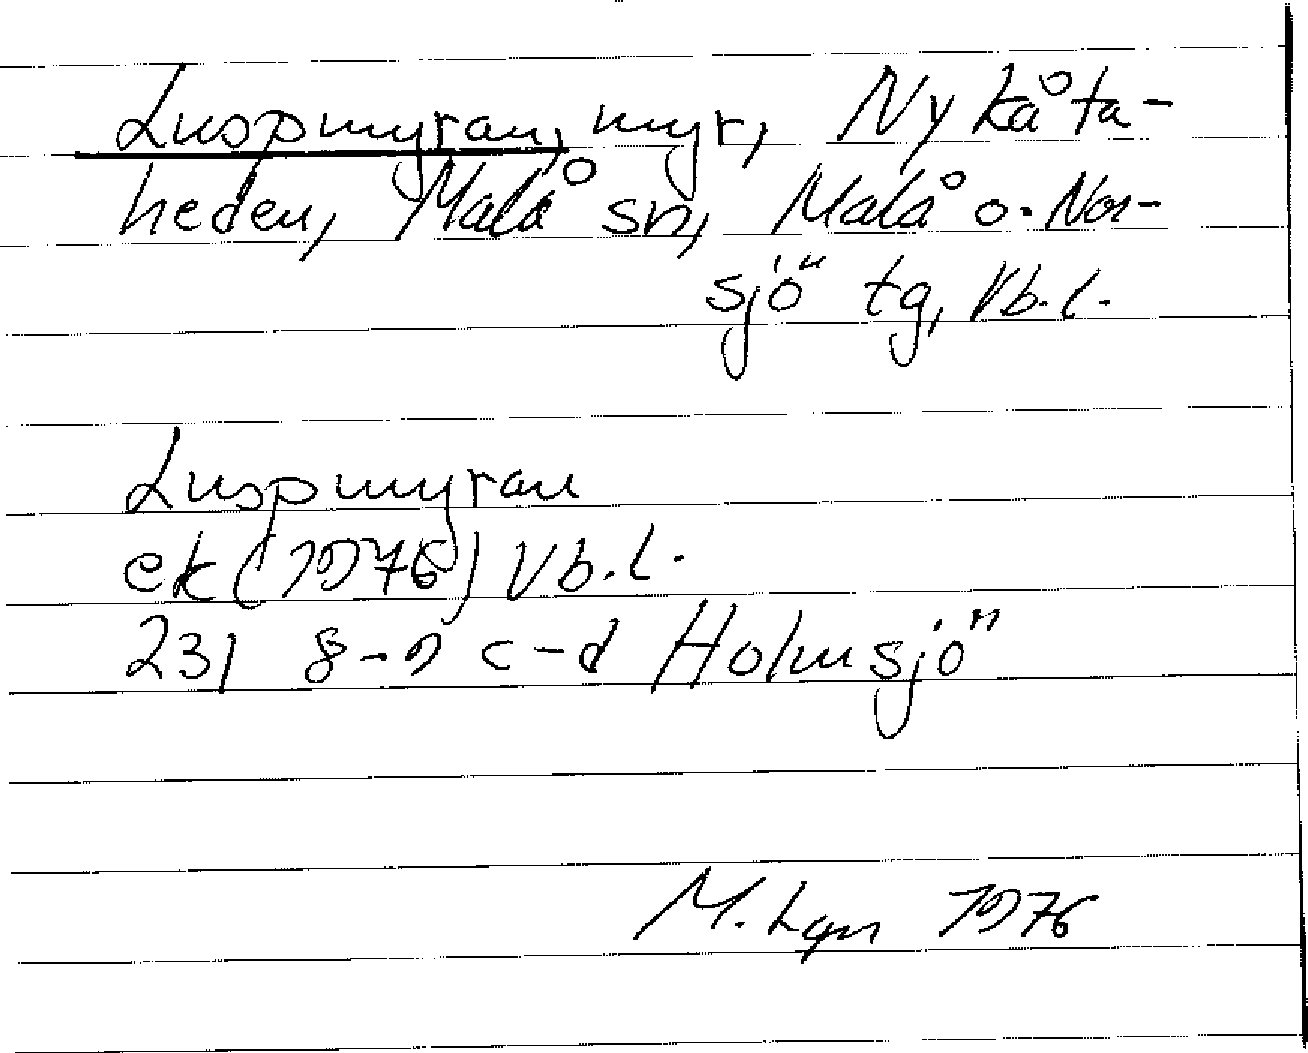 Luspmyran, myr, Nykåta-
heden, Malå sn, Malå o. Nor-
sjö tg, Vb.l.
Luspmyran
ek (1976) Vb.l.
23J 8-9 c-d Holmsjö
M. 1976